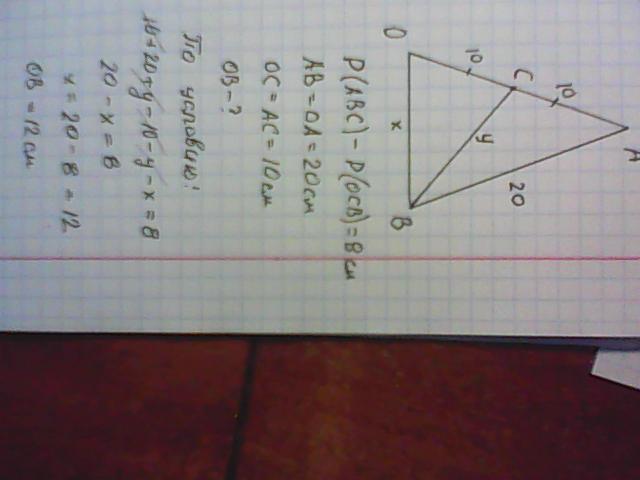 A
10
20
C
10
y
O
x
B
P(ABC) - P(OCB) = 8 см
AB = OA = 20 см
OC = AC = 10 см
OB - ?
По условию:
10 + 20 + y - 10 - y - x = 8
20 - x = 8
x = 20 - 8 = 12
OB = 12 см